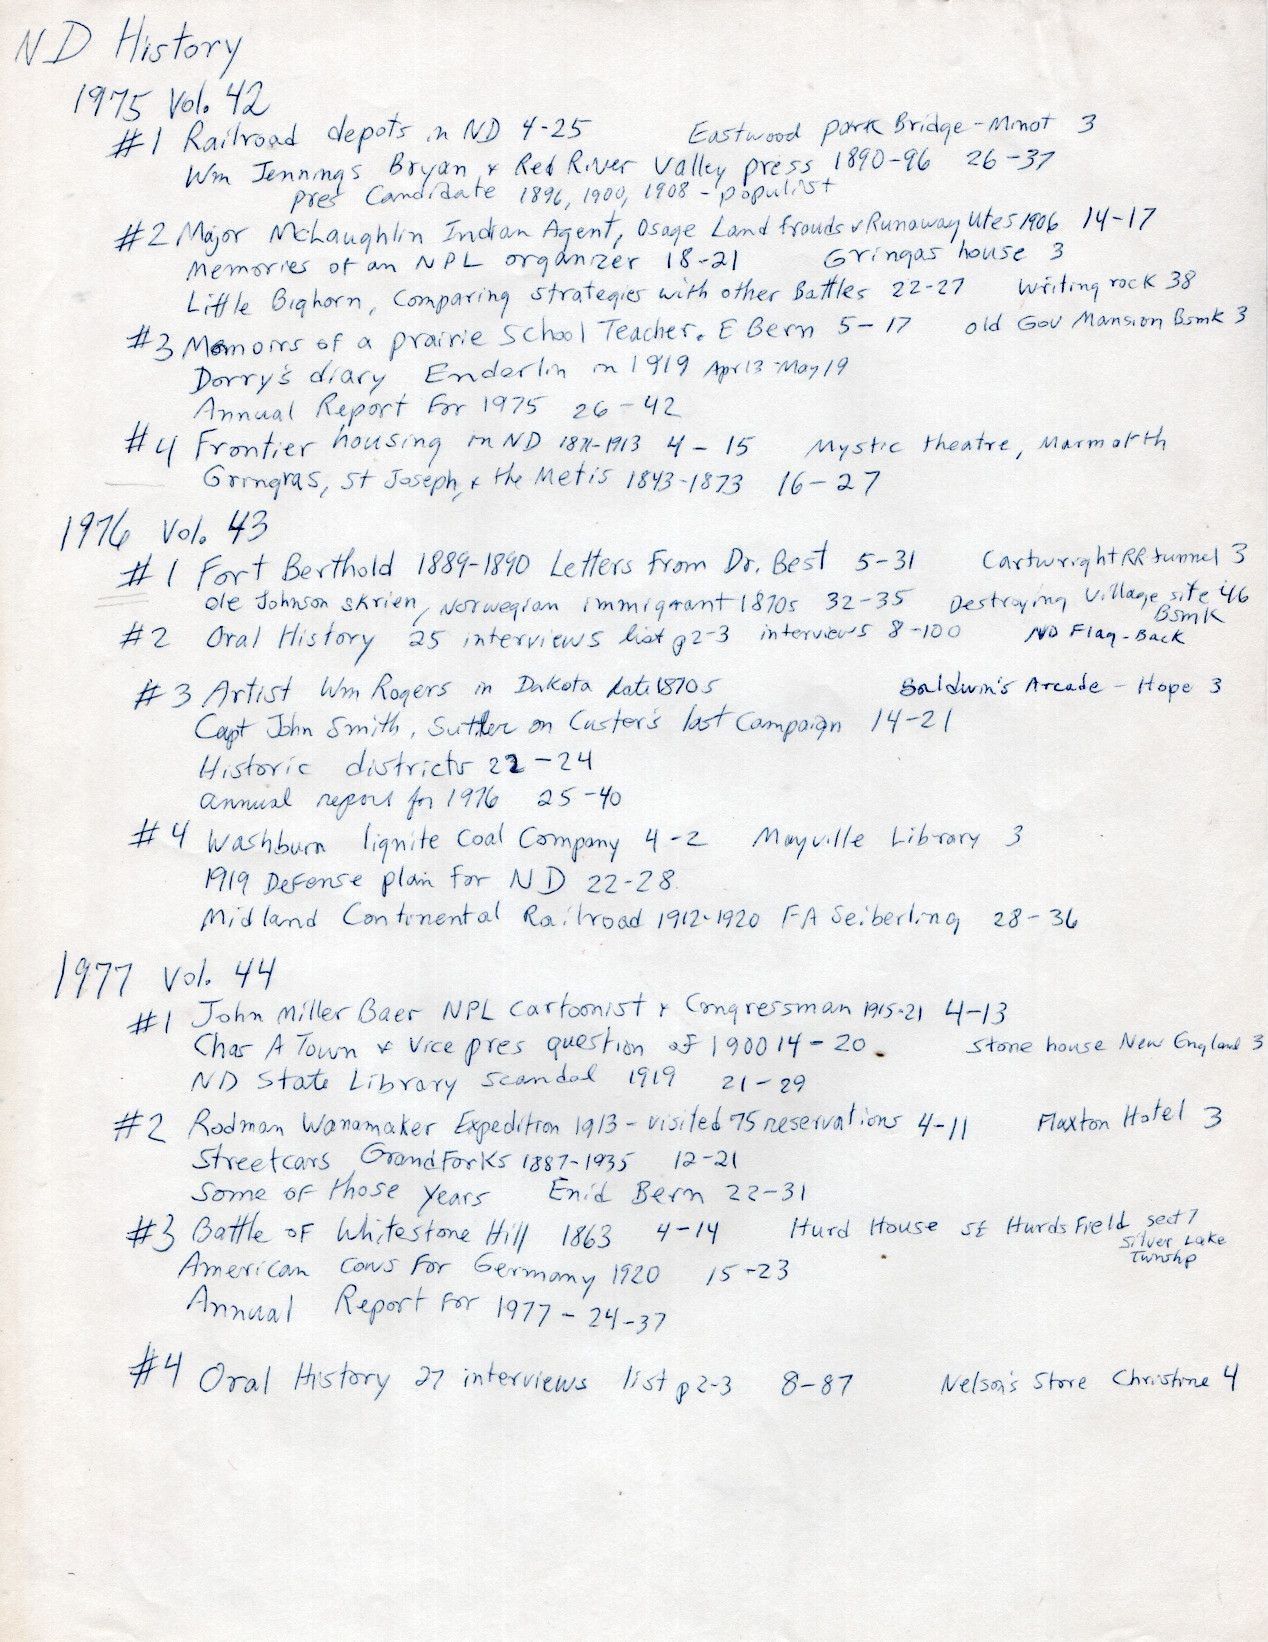 ND History
1975 Vol. 42
#1 Railroad depots in ND 4-25 Eastwood park Bridge - Minot 3
Wm Jennings Bryan & Red River Valley press 1890-96 26-37
pres Candidate 1896, 1900, 1908 - populist
#2 Major McLaughlin Indian Agent, Osage Land frauds & Runaway Utes 1906 14-17
Memories of an NPL organizer 18-21 Gringas house 3
Little Bighorn, Comparing strategies with other Battles 22-27 Writing rock 38
#3 Memoirs of a prairie School Teacher. E Bern 5-17 old Gov Mansion Bsmk 3
Dorry's diary Enderlin in 1919 Apr 13 - May 19
Annual Report for 1975 26-42
#4 Frontier housing in ND 1871-1913 4-15 Mystic theatre, Marmarth
Gringras, St Joseph, & the Metis 1843-1873 16-27
1976 Vol. 43
#1 Fort Berthold 1889-1890 Letters From Dr. Best 5-31 Cartwright RR tunnel 3
Ole Johnson Skrien, Norwegian immigrant 1870s 32-35 Destroying Village site 46
Bsmk
#2 Oral History 25 interviews list p2-3 interviews 8-100 ND Flag - Back
#3 Artist Wm Rogers in Dakota late 1870s Baldwin's Arcade - Hope 3
Capt John Smith, Suttler on Custer's last Campaign 14-21
Historic districts 22-24
annual report for 1976 25-40
#4 Washburn lignite Coal Company 4-2 Mayville Library 3
1919 Defense plan for ND 22-28.
Midland Continental Railroad 1912-1920 FA Seiberling 28-36
1977 Vol. 44
#1 John Miller Baer NPL cartoonist & Congressman 1915-21 4-13
Chas A Town & Vice pres question of 1900 14-20. Stone house New England 3
ND State Library scandal 1919 21-29
#2 Rodman Wanamaker Expedition 1913 - visited 75 reservations 4-11 Flaxton Hotel 3
Streetcars Grand Forks 1887-1935 12-21
Some of those years Enid Bern 22-31
#3 Battle of Whitestone Hill 1863 4-14 Hurd House SE Hurds Field sect 7
Silver Lake
Twnshp
American cows For Germany 1920 15-23
Annual Report For 1977 - 24-37
#4 Oral History 27 interviews list p2-3 8-87 Nelson's Store Christine 4